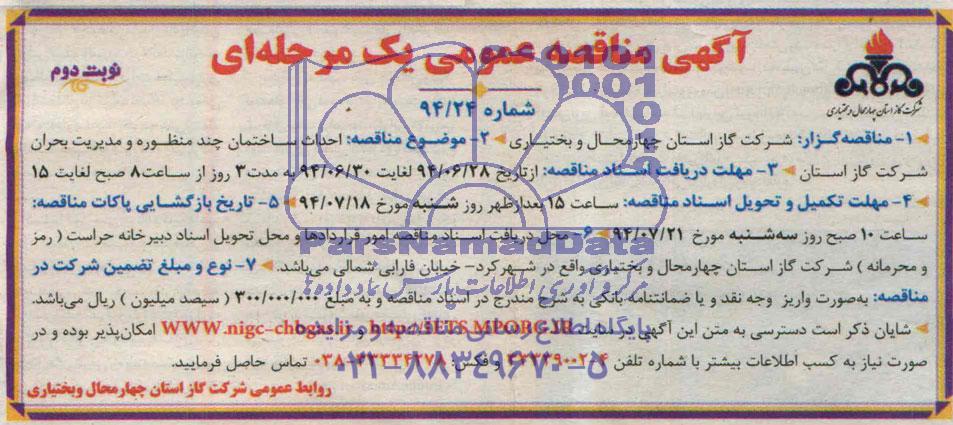 آگهی مناقصه عمومی یک مرحله‌ای
نوبت دوم
شماره ۹۴/۲۴
شرکت گاز استان چهارمحال و بختیاری
۱- مناقصه‌گزار: شرکت گاز استان چهارمحال و بختیاری ۲- موضوع مناقصه: احداث ساختمان چند منظوره و مدیریت بحران
شرکت گاز استان ۳- مهلت دریافت اسناد مناقصه: ازتاریخ ۹۴/۰۶/۲۸ لغایت ۹۴/۰۶/۳۰ به مدت ۳ روز از ساعت ۸ صبح لغایت ۱۵
۴- مهلت تکمیل و تحویل اسناد مناقصه: ساعت ۱۵ بعدازظهر روز شنبه مورخ ۹۴/۰۷/۱۸ ۵- تاریخ بازگشایی پاکات مناقصه:
ساعت ۱۰ صبح روز سه‌شنبه مورخ ۹۴/۰۷/۲۱ ۶- محل دریافت اسناد مناقصه امور قراردادها و محل تحویل اسناد دبیرخانه حراست ( رمز
و محرمانه ) شرکت گاز استان چهارمحال و بختیاری واقع در شهرکرد- خیابان فارابی شمالی می‌باشد. ۷- نوع و مبلغ تضمین شرکت در
مناقصه: به‌صورت واریز وجه نقد و یا ضمانتنامه بانکی به شرح مندرج در اسناد مناقصه و به مبلغ ۳۰۰/۰۰۰/۰۰۰ ( سیصد میلیون ) ریال می‌باشد.
شایان ذکر است دسترسی به متن این آگهی در سایت http://IETS.MPORG.IR و WWW.nigc-chbgas.ir امکان‌پذیر بوده و در
صورت نیاز به کسب اطلاعات بیشتر با شماره تلفن و فکس: ۰۳۸-۳۲۳۳۴۲۷۸ تماس حاصل فرمایید.
روابط عمومی شرکت گاز استان چهارمحال وبختیاری
ParsNamadData
مرکز فرآوری اطلاعات پارس نماد داده‌ها
پایگاه اطلاع رسانی مناقصه و مزایده
۰۲۱-۸۸۳۴۹۶۷۰-۵